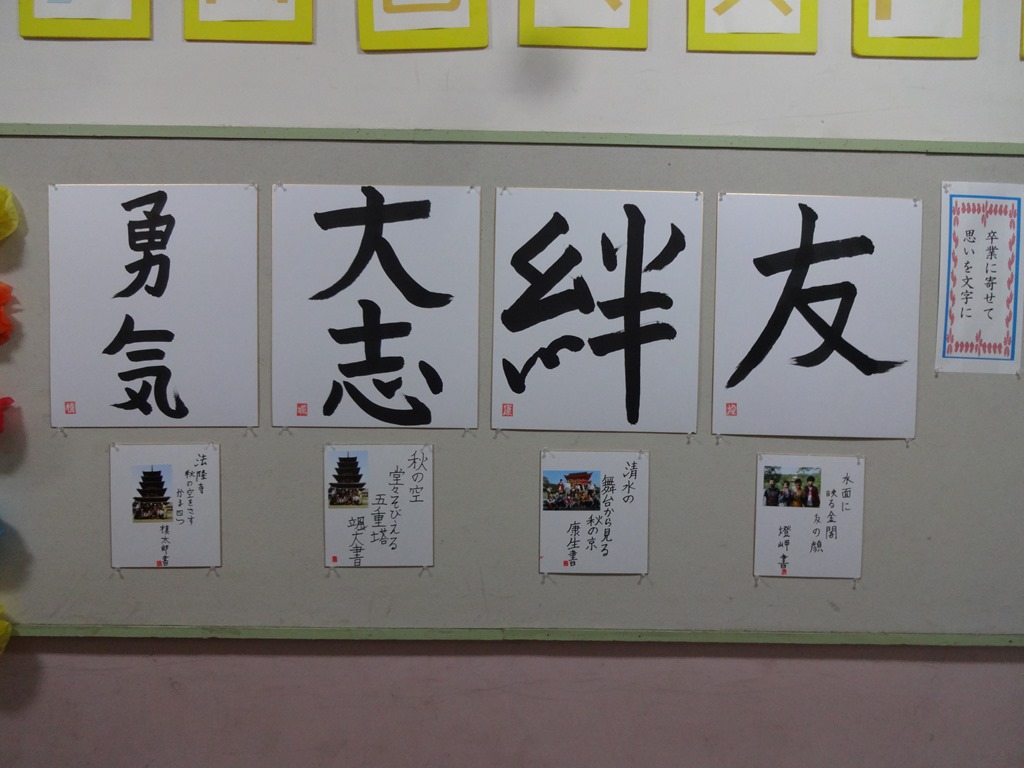 卒業に寄せて
思いを文字に
友
絆
大
志
勇
気
水面に
映る金閣
友の顔
燈岬書
清水の
舞台から見る
秋の京
康生書
秋の空
堂々そびえる
五重塔
颯大書
法隆寺
秋の空をさす
太郎書